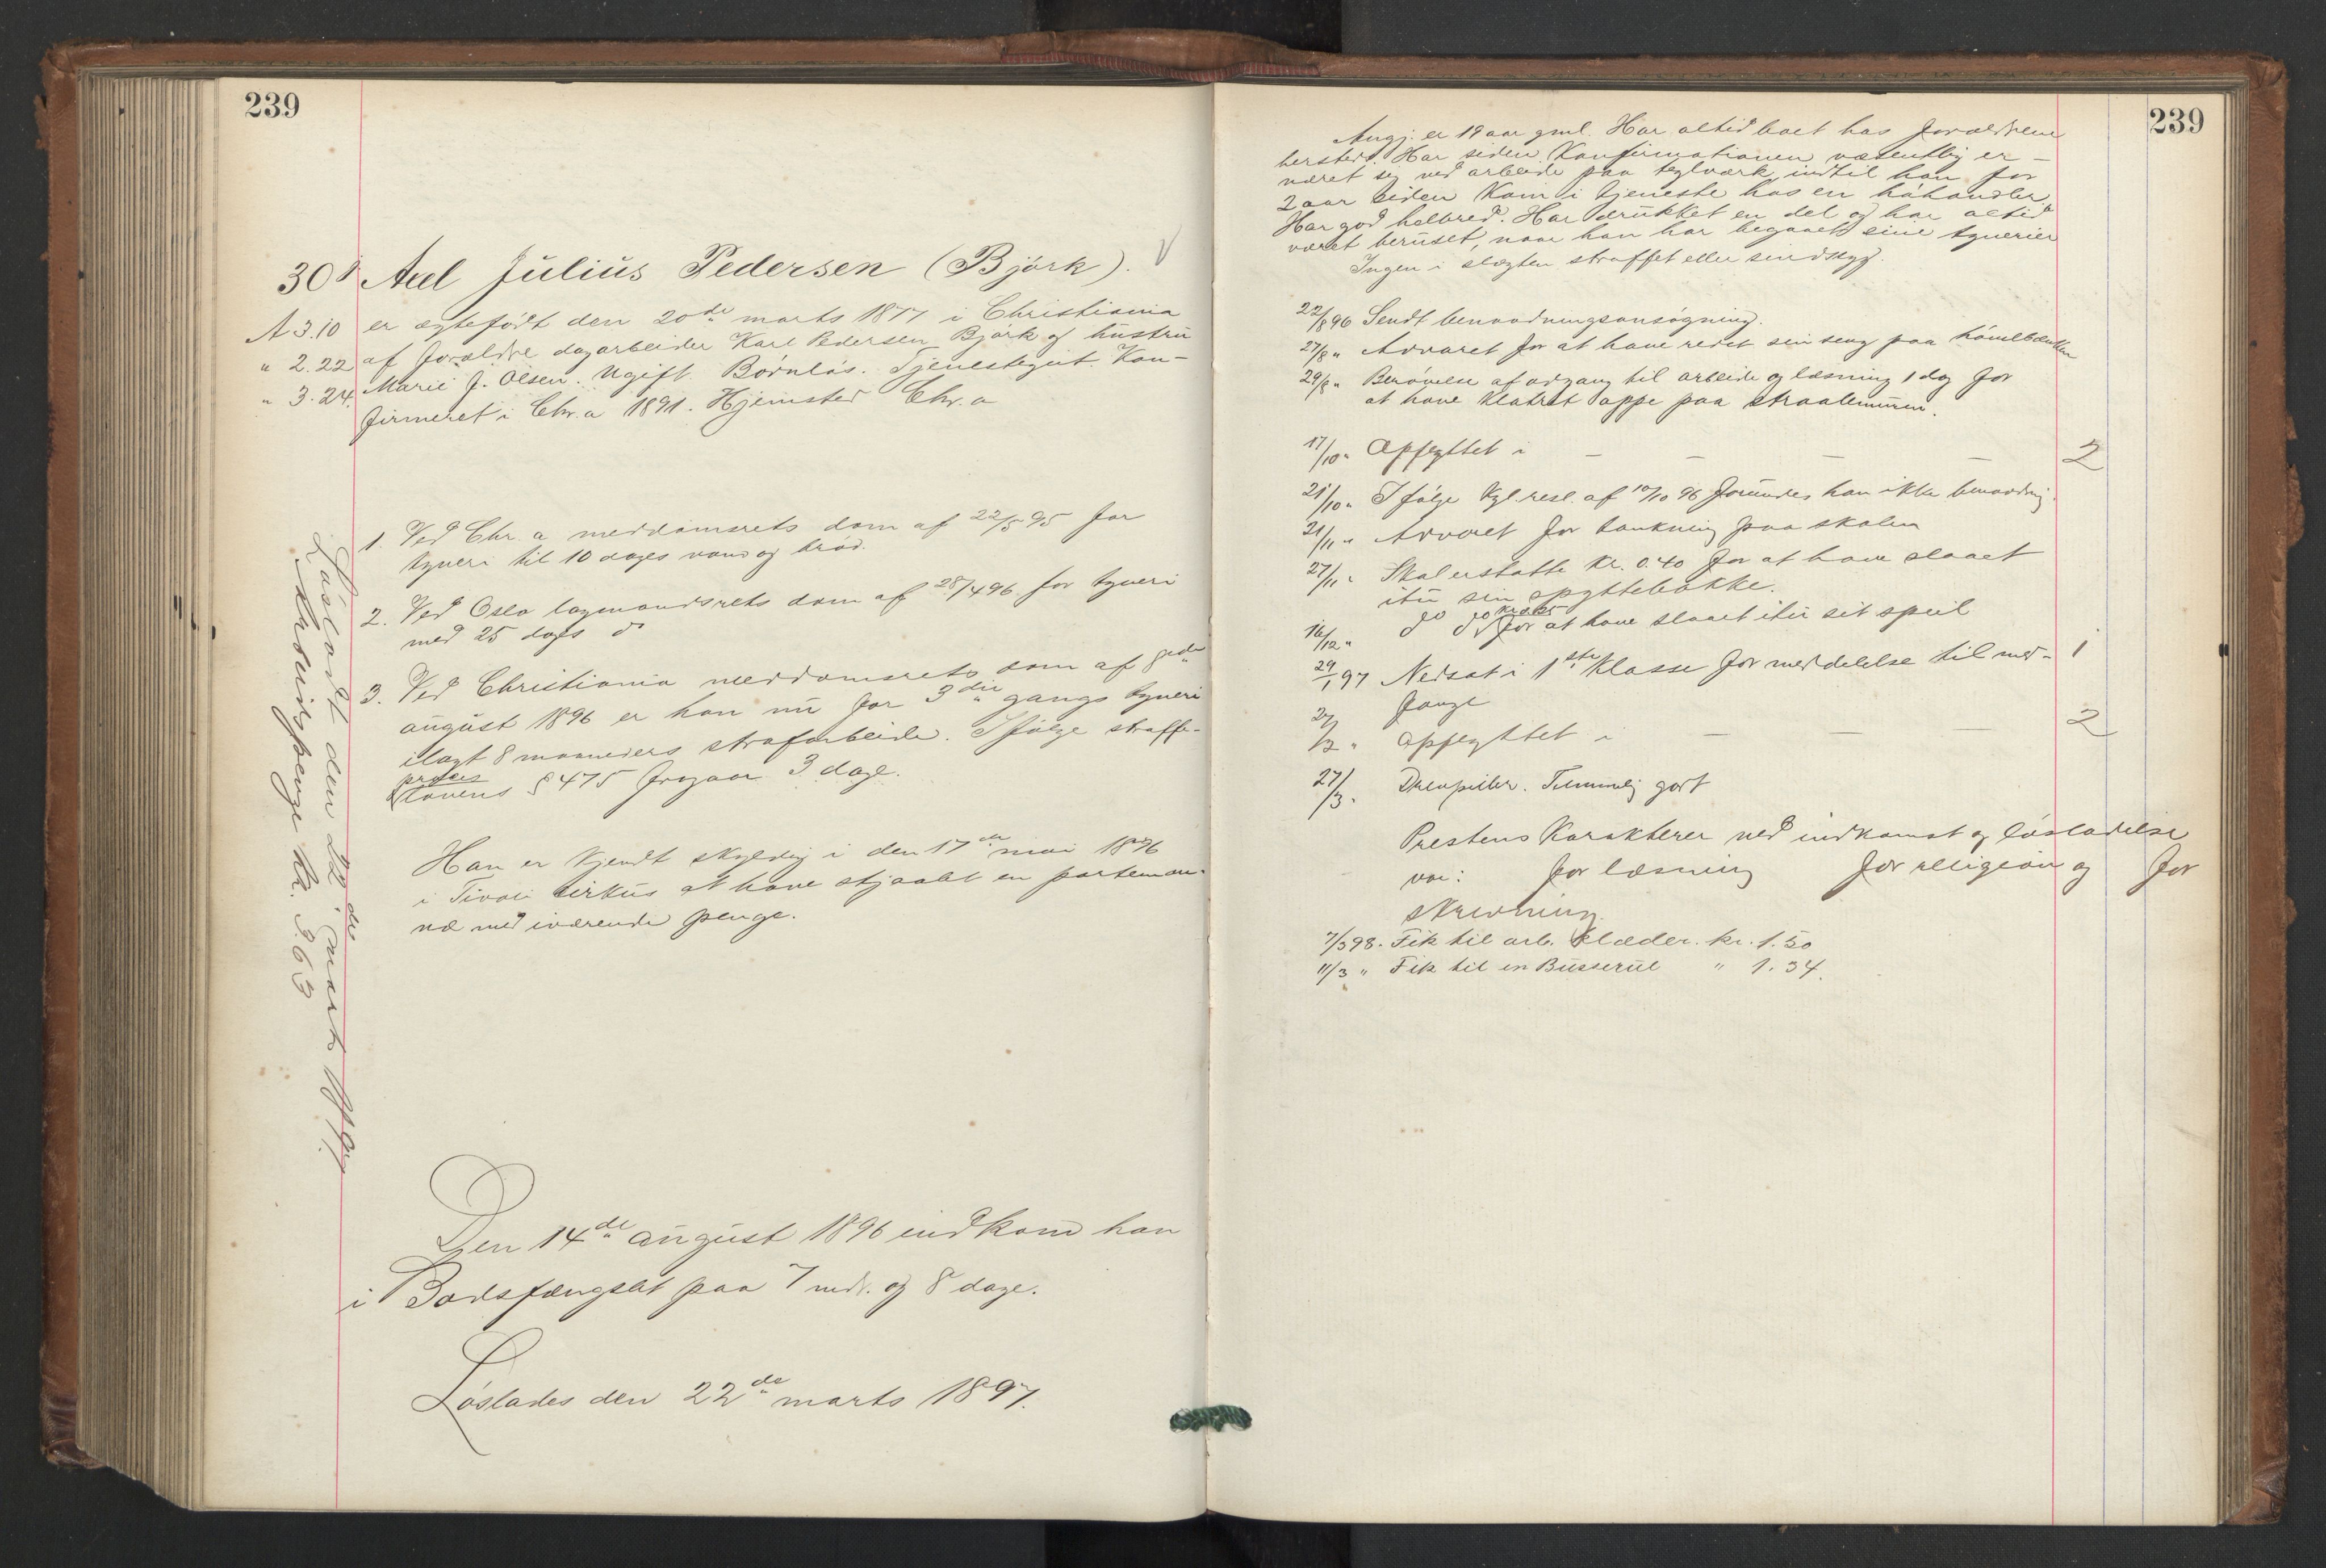 239
301 Axel Júliús Pedersen (Björk).
A 3.10 er ægtefödt den 20de marts 1877 i Christiania
" 2.22 af forældre dagarbeider Karl Pedersen Björk og hústrú
" 3.24. Marie J. Olsen. Ugift. Börnlös. Tjenestegút. Kon-
firmeret i Chr.a 1891. Hjemsted Chr.a
1. Ved Chr.a meddomsrets dom af 22/5 95 for
tyveri til 10 dages vand og bröd.
2. Ved Oslo lagmandsrets dom af 28/4 96 for tyveri
med 25 dages do
3. Ved Christiania meddomsrets dom af 8de
aúgúst 1896 er han nú for 3die gangs tyveri
ilagt 8 maaneders strafarbeide. Ifölge straffe-
proces
lovens § 475 fragaar 3 dage.
Han er kjendt skyldig i den 17de mai 1896
i Tivoli cirkús at have stjaalet en portemon-
næ med iværende penge.
Löslodt den 22de marts 1897.
Arbeidspenge kr. 3.63
Den 14de aúgúst 1896 indkom han
i Bodsfængslet paa 7 mdr. og 8 dage.
Löslades den 22de marts 1897.
239
Angj. er 19 aar gml. Har altid boet hos forældrene
hersteds. Har siden konfirmationen væsentlig er-
næret sig ved arbeide paa teglværk, indtil han for
2 aar siden kom i tjeneste hos en höhandler.
Har god helbred. Har drúkket en del og har altid
været berúset, naar han har begaaet sine tyverier
Ingen i slægten straffet eller sindssyg.
22/8 96 Sendt benaadningsansögning.
27/8 " Advaret for at have redet sin seng paa hövelbænken
29/8 " Berövelse af adgang til arbeide og læsning 1 dag for
at have klatret oppe paa straalemúren.
17/10 " Opflyttet i — — — — 2
21/10 " Ifölge kgl. resl. af 10/10 96 forúndes han ikke benaadning.
21/11 " Advaret for bankning paa skolen
27/11 " Skal erstatte kr. 0.40 for at have slaaet
itú sin spyttebakke.
16/12 " do do for at have slaaet itú sit speil
29/1 97 Nedsat i 1ste klasse for meddelelse til med- 1
fange
" opflyttet i — — — 2
27/3 " Temmelig godt
Prestens karakterer ved indkomst og lösladelse
var: for læsning for religion og for
skrivning.
7/3 98. Fik til arb. klæder. kr. 1.50
11/3 " Fik til en Bússerúl " 1.34.